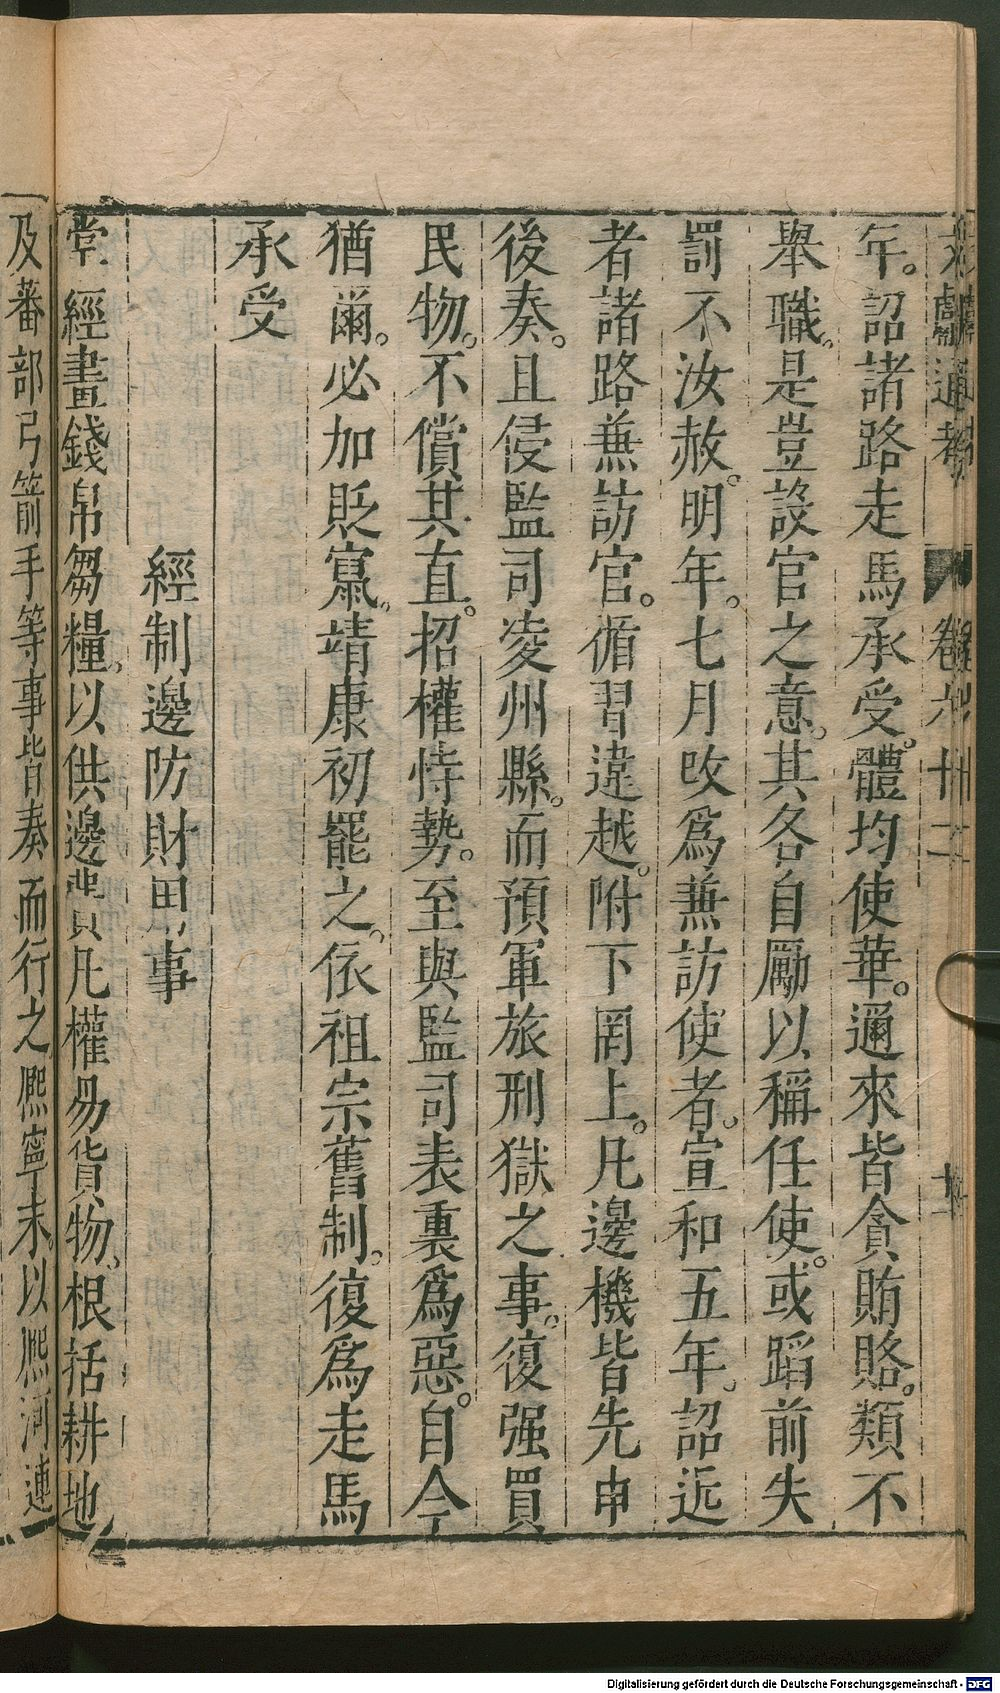 文獻通考 卷六十二 十一
年。詔諸路走馬承受。體均使華。邇來皆貪賄賂。類不
舉職。是豈設官之意。其各自勵以稱任使。或蹈前失
罰不汝赦。明年。七月改爲亷訪使者。宣和五年。詔近
者諸路亷訪官。循習違越。附下罔上。凡邊機皆先申
後奏。且侵監司凌州縣。而預軍旅刑獄之事。復强買
民物。不償其直。招權恃勢。至與監司表裏爲惡。自今
猶爾。必加貶竄。靖康初罷之。依祖宗舊制。復爲走馬
承受
經制邊防財用事
掌經畫錢帛芻糧。以供邊費凡榷易貨物。根括耕地
及蕃部弓箭手等事皆奏而行之熙寧末。以熙河連
Digitalisierung gefördert durch die Deutsche Forschungsgemeinschaft - DFG